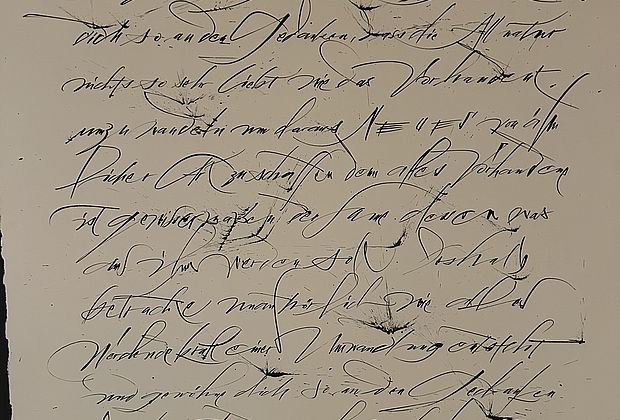 dich so an den Gedanken, dass die Allnatur
nichts so sehr liebt wie das Vorhandene.
umzuwandeln um daraus NEUES von ähn
licher Art zu schaffen denn alles Vorhandene
ist gewissermaßen der Same dessen was
aus ihm werden soll Deshalb
betrachte unaufhörlich wie alles
Werdende kraft einer Umwandlung entsteht
und gewöhne dich so an den Gedanken